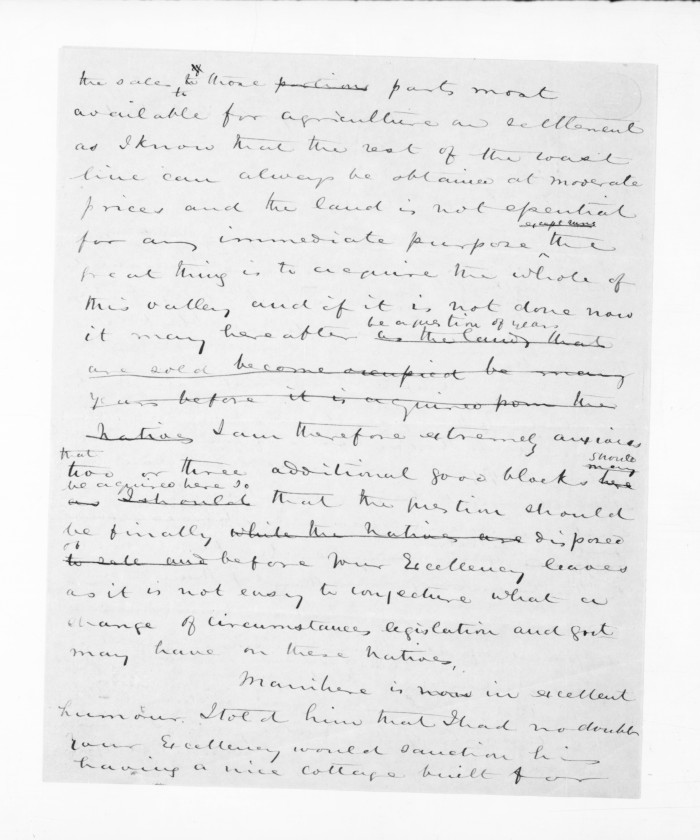 the sales to those portions parts most
to
available for agriculture an settlement
as I know that the rest of the coast
line can always be obtained at moderate
prices and the land is not essential
except runs
for any immediate purpose the
great thing is to acquire the whole of
this valley and if it is not done now
be a question of years
it may hereafter as the lands that
are sold become occupied be many
years before it is acquired from the
Natives I am therefore extremely anxious
that should
two or three additional good blocks many here
be acquired here so
as I should that the question should
be finally while the Natives are disposed
of
to sale and before Your Excellency leaves
as it is not easy to conjecture what a
change of circumstances legislation and govt
may have on these Natives.
Manihera is now in excellent
humour. I told him that I had no doubt
your Excellency would sanction his
having a nice cottage built for